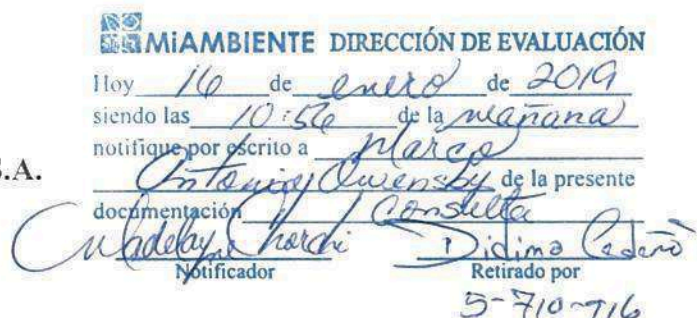 MiAMBIENTE DIRECCIÓN DE EVALUACIÓN
Hoy 16 de enero de 2019
siendo las 10:56 de la mañana
notifique por escrito a Marco
S.A.
Antonio Owensby de la presente
documentación Consulta
Didimo Cedeño
Notificador Retirado por
5-710-916